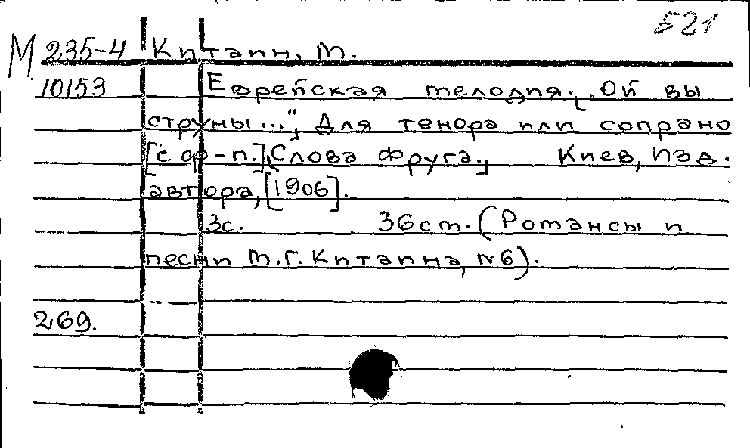 521
М 235-4 Китаин, М.
10153 Еврейская мелодия. „Ой вы
струны..." Для тенора или сопрано
[с ф-п.] [Слова Фруга.] Киев, Изд.
автора, [1906].
3с. 36ст. (Романсы и
песни М.Г. Китаина, №6).
269.